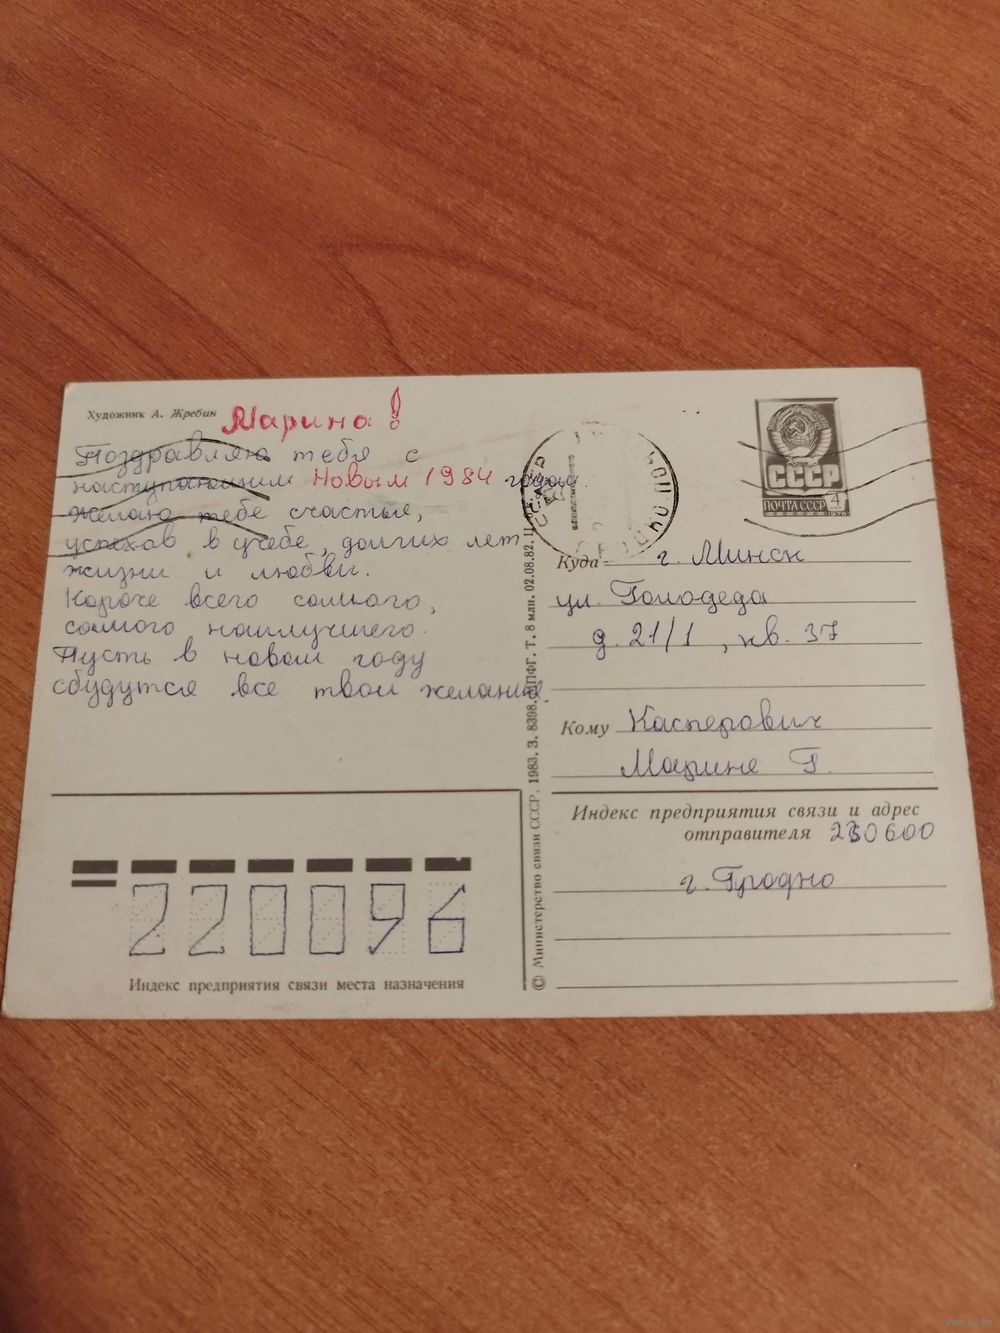 Художник А. Жребин
Марина!
Поздравляю тебя с
наступающим Новым 1984 годом.
Желаю тебе счастья,
успехов в учебе, долгих лет
жизни и любви.
Короче всего самого,
самого наилучшего.
Пусть в новом году
сбудутся все твои желания.
Индекс предприятия связи места назначения
220096
© Министерство связи СССР. 1983. З. 8398. МПФГ. Т. 8 млн. 02.08.82. Ц.
СССР
ПОЧТА СССР 4
1976
Куда г. Минск
ул. Голодеда
д. 21/1, кв. 37
Кому Касперович
Марине Г.
Индекс предприятия связи и адрес
отправителя 230600
г. Гродно
www.ay.by